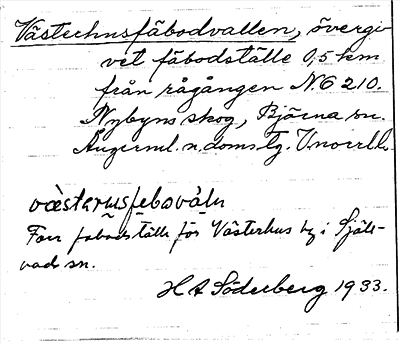 Västerhusfäbodvallen, övergi-
vet fäbodställe 0,5 km
från rågången N:o 210.
Nybyns skog, Björna sn.
Ångerml. n. doms.
væ̀stərusfebovàln
Forr fäbodställe för Västerhus by i Själe-
vads sn.
H A Söderberg 1933.